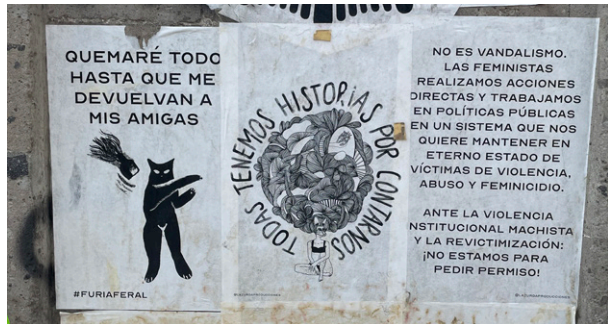 QUEMARÉ TODO
HASTA QUE ME
DEVUELVAN A
MIS AMIGAS
#FURIAFERAL
TODAS TENEMOS HISTORIAS POR CONTARNOS
NO ES VANDALISMO.
LAS FEMINISTAS
REALIZAMOS ACCIONES
DIRECTAS Y TRABAJAMOS
EN POLÍTICAS PÚBLICAS
EN UN SISTEMA QUE NOS
QUIERE MANTENER EN
ETERNO ESTADO DE
VÍCTIMAS DE VIOLENCIA,
ABUSO Y FEMINICIDIO.
ANTE LA VIOLENCIA
INSTITUCIONAL MACHISTA
Y LA REVICTIMIZACIÓN:
¡NO ESTAMOS PARA
PEDIR PERMISO!